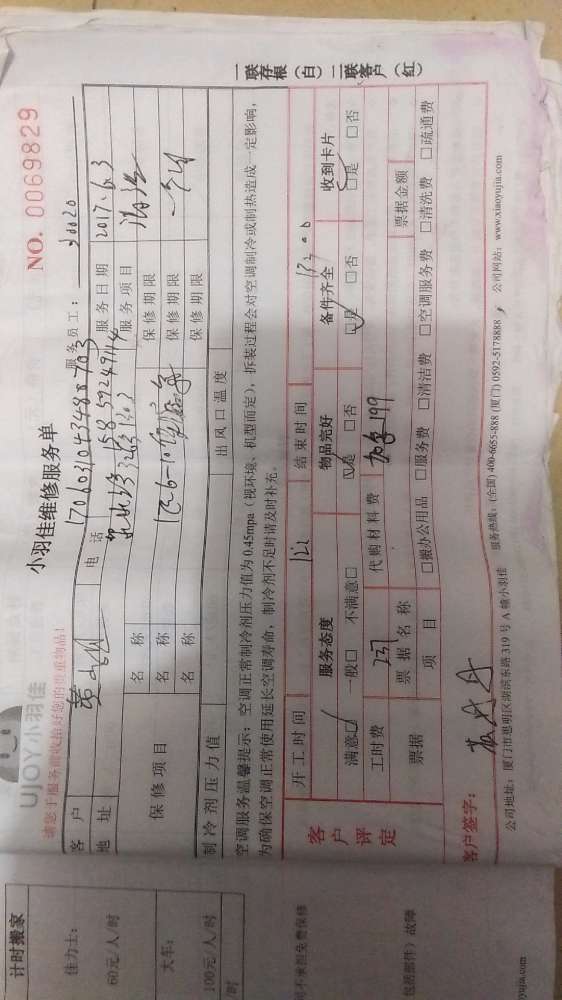 计时搬家
佳力士：
60元/人/时
大车：
100元/人/时
时
司不承担免费保修
包括部件）故障
yujia.com
UJOY小羽佳
请您于服务前收拾好您的贵重物品！
小羽佳维修服务单
NO. 0069829
服务员工： 30020
客户 电话
地址 服务日期 2017.6.3
服务项目
保修项目 名称 保修期限
名称 保修期限
名称 保修期限
制冷剂压力值 出风口温度
空调服务温馨提示： 空调正常制冷剂压力值为0.45mpa（视环境、机型而定），拆装过程会对空调制冷或制热造成一定影响，
为确保空调正常使用延长空调寿命，制冷剂不足时请及时补充。
客户评定
开工时间 结束时间
服务态度 物品完好 备件齐全 收到卡片
满意☑ 一般□ 不满意□ ☑是 □否 ☑是 □否 ☑是 □否
工时费 237 代购材料费 加急199
票据 票据名称 票据金额
项目 □搬办公用品 □服务费 □清洁费 □空调服务费 □清洗费 □疏通费
客户签字：
公司地址：厦门市思明区湖滨东路319号A幢小羽佳 服务热线：(全国) 400-6655-888 (厦门) 0592-5178888 公司网站：www.xiaoyujia.com
一联存根（白）二联客户（红）